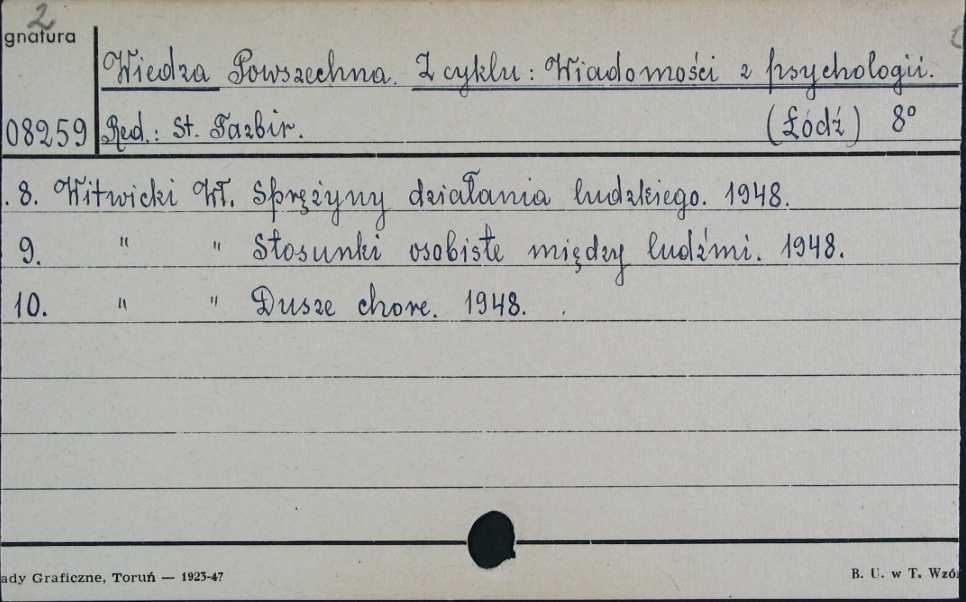 2
gnatura
Wiedza Powszechna. Z cyklu: Wiadomości z psychologii.
08259 Red.: St. Tazbir. (Łódź) 8°
. 8. Witwicki Wł. Sprężyny działania ludzkiego. 1948.
9. " " Stosunki osobiste między ludźmi. 1948.
10. " " Dusze chore. 1948.
ady Graficzne, Toruń — 1923-47 B. U. w T. Wzór